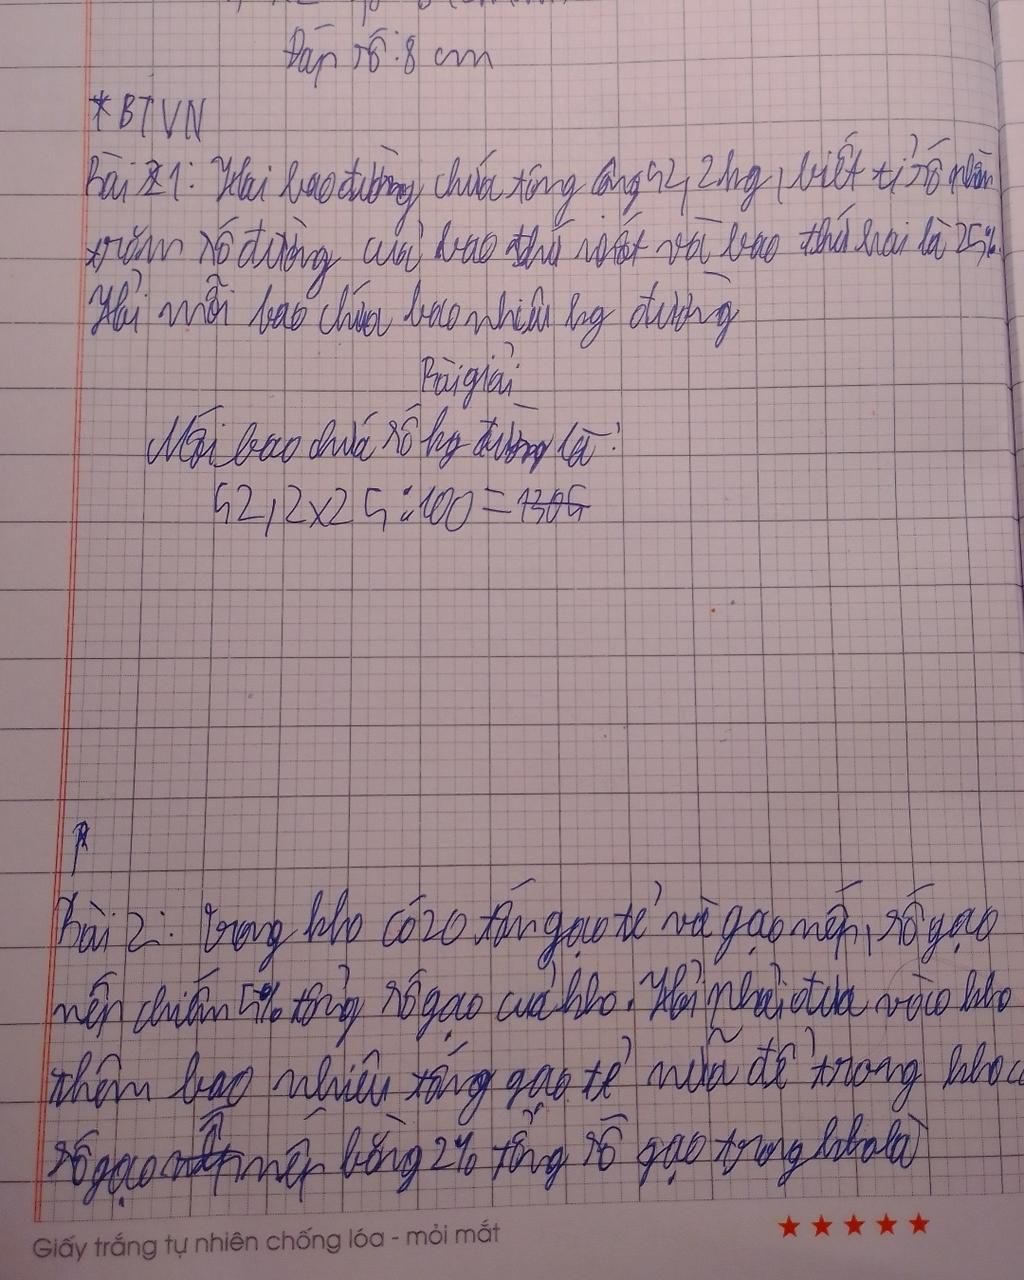 Đáp số: 8 cm
*BTVN
Bài 1: Hai bao đường chứa tổng cộng 52,2kg, biết tỉ số phần
trăm số đường của bao thứ nhất và bao thứ hai là 25%.
Hỏi mỗi bao chứa bao nhiêu kg đường
Bài giải
Mỗi bao chứa số kg đường là:
52,2x25:100=1305
Bài 2: Trong kho có 20 tấn gạo tẻ và gạo nếp, số gạo
nếp chiếm 5% tổng số gạo của kho. Hỏi phải đưa vào kho
thêm bao nhiêu tấng gạo tẻ nữa để trong kho
số gạo nếp bằng 2% tổng số gạo trong kho là
Giấy trắng tự nhiên chống lóa - mỏi mắt